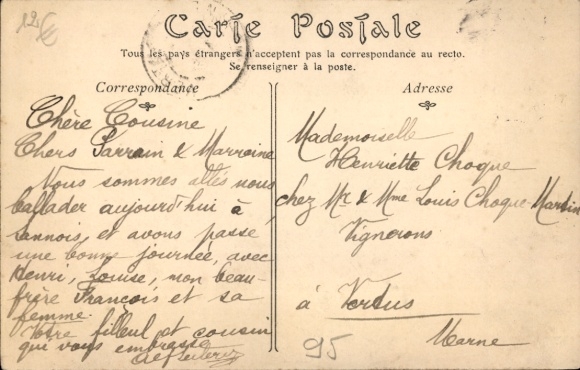 125
Carte Postale
Tous les pays étrangers n'acceptent pas la correspondance au recto.
Se renseigner à la poste.
Correspondance
Chère Cousine
Chers Parrain & Marraine
Nous sommes allés nous
ballader aujourd'hui à
Sannois, et avons passé
une bonne journée, avec
Henri, Louise, mon beau-
frère François et sa
femme.
Votre filleul et cousin
qui vous embrasse
Adresse
Mademoiselle
Henriette Choque
chez Mr & Mme Louis Choque-Martin
Vignerons
à Vertus
Marne
95